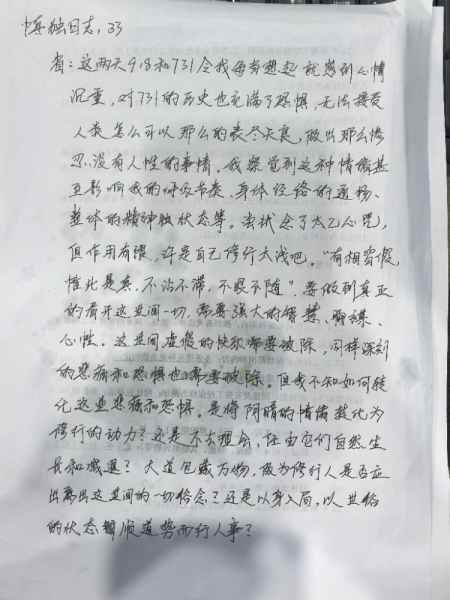 慎独日志，33
省：这两天918和731令我每每想起就感到心情
沉重，对731的历史也充满了恐惧，无法接受
人类怎么可以那么的丧尽天良，做出那么惨
忍、没有人性的事情。我察觉到这种情绪甚
至影响我的呼吸节奏、身体经络的通畅、
整体的精神健状态等。尝试念了太乙心咒，
但作用有限，许是自己修行太浅吧。“有相皆假，
惟此是真，不沾不滞，不畏不随”，要做到真正
的看开这世间一切，需要强大的智慧、历练、
心性。这世间虚假的快乐需要破除，同样深刻
的悲痛和恐惧也需要破除。但我不知如何转
化这些悲痛和恐惧，是将阴暗的情绪转化为
修行的动力？还是不去理会，任由它们自然生
长和熄灭？大道包载万物，做为修行人是否应
出离出这世间的一切俗念？还是以身入局，以世俗
的状态顺道势而行人事？